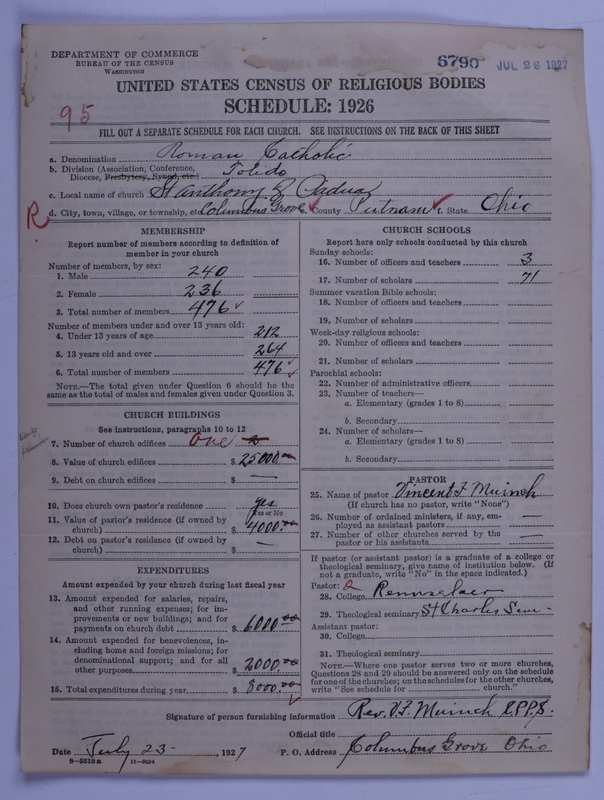 DEPARTMENT OF COMMERCE
BUREAU OF THE CENSUS
WASHINGTON
6790 JUL 26 1927
UNITED STATES CENSUS OF RELIGIOUS BODIES
SCHEDULE: 1926
95
FILL OUT A SEPARATE SCHEDULE FOR EACH CHURCH. SEE INSTRUCTIONS ON THE BACK OF THIS SHEET
a. Denomination Roman Catholic
b. Division (Association, Conference,
Diocese, Presbytery, Synod, etc.) Toledo
c. Local name of church St Anthony of Padua
R
d. City, town, village, or township, etc. Columbus Grove e. County Putnam f. State Ohio
MEMBERSHIP
Report number of members according to definition of
member in your church
Number of members, by sex:
1. Male 240
2. Female 236
3. Total number of members 476
Number of members under and over 13 years old:
4. Under 13 years of age 212
5. 13 years old and over 264
6. Total number of members 476
NOTE.—The total given under Question 6 should be the
same as the total of males and females given under Question 3.
CHURCH BUILDINGS
See instructions, paragraphs 10 to 12
7. Number of church edifices one
8. Value of church edifices $ 25000.00
9. Debt on church edifices $ —
10. Does church own pastor's residence yes
Yes or No
11. Value of pastor's residence (if owned by
church) $ 4000.00
12. Debt on pastor's residence (if owned by
church) $ —
EXPENDITURES
Amount expended by your church during last fiscal year
13. Amount expended for salaries, repairs,
and other running expenses; for im-
provements or new buildings; and for
payments on church debt $ 6000.00
14. Amount expended for benevolences, in-
cluding home and foreign missions; for
denominational support; and for all
other purposes $ 2000.00
15. Total expenditures during year $ 8000.00
CHURCH SCHOOLS
Report here only schools conducted by this church
Sunday schools:
16. Number of officers and teachers 3
17. Number of scholars 71
Summer vacation Bible schools:
18. Number of officers and teachers
19. Number of scholars
Week-day religious schools:
20. Number of officers and teachers
21. Number of scholars
Parochial schools:
22. Number of administrative officers
23. Number of teachers—
a. Elementary (grades 1 to 8)
b. Secondary
24. Number of scholars—
a. Elementary (grades 1 to 8)
b. Secondary
PASTOR
25. Name of pastor Vincent F Muinch
(If church has no pastor, write "None")
26. Number of ordained ministers, if any, em-
ployed as assistant pastors —
27. Number of other churches served by the
pastor or his assistants —
If pastor (or assistant pastor) is a graduate of a college or
theological seminary, give name of institution below. (If
not a graduate, write "No" in the space indicated.)
Pastor:
28. College Rennselaer
29. Theological seminary St Charles Sem -
Assistant pastor:
30. College
31. Theological seminary
NOTE.—Where one pastor serves two or more churches,
Questions 28 and 29 should be answered only on the schedule
for one of the churches; on the schedules for the other churches,
write "See schedule for church."
Signature of person furnishing information Rev. V.F. Muinch C.PP.S.
Official title
Date July 23 - , 1927 P. O. Address Columbus Grove Ohio
8—5518 a 11—9024